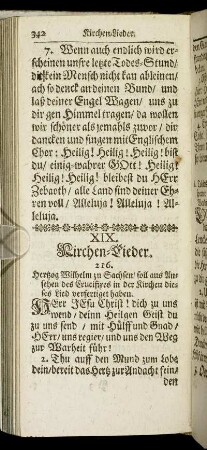 342 Kirchen-Lieder.
7. Wenn auch endlich wird er-
scheinen unsre letzte Todes-Stund/
die kein Mensch nicht kan ableinen/
ach so denck an deinen Bund/ und
laß deiner Engel Wagen/ uns zu
dir gen Himmel tragen/ da wollen
wir schöner als jemahls zuvor/ dir
dancken und singen mit Englischem
Chor: Heilig! Heilig! Heilig! bist
du/ einig-wahrer GOtt! Heilig!
Heilig! Heilig! bleibest du HErr
Zebaoth/ alle Land sind deiner Eh-
ren voll/ Alleluja! Alleluja! Al-
leluja.
XIX.
Kirchen-Lieder.
216.
Hertzog Wilhelm zu Sachsen/ soll aus An-
sehen des Crucifixes in der Kirchen die-
ses Lied verfertiget haben.
HErr JEsu Christ! dich zu uns
wend/ deinn Heilgen Geist du
zu uns send/ mit Hülff und Gnad/
HErr/ uns regier/ und uns den Weg
zur Warheit führ!
2. Thu auff den Mund zum Lobe
dein/ bereit das Hertz zur Andacht fein/
den